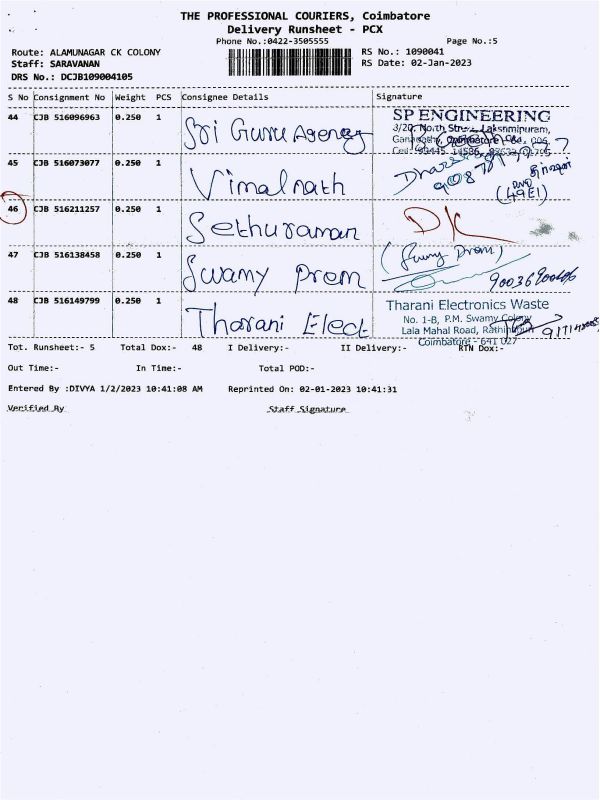 THE PROFESSIONAL COURIERS, Coimbatore
Delivery Runsheet - PCX
Phone No.:0422-3505555 Page No.:5
Route: ALAMUNAGAR CK COLONY RS No.: 1090041
Staff: SARAVANAN RS Date: 02-Jan-2023
DRS No.: DCJB109004105
S No Consignment No Weight PCS Consignee Details Signature
44 CJB 516096963 0.250 1 Sri Guru Agency SP ENGINEERING
3/20, North Street, Lakshmipuram,
Ganapathy, Coimbatore
45 CJB 516073077 0.250 1 Vimalnath
(49E1)
46 CJB 516211257 0.250 1 Sethuraman DK
47 CJB 516138458 0.250 1 Swamy Prem (Swamy Prem)
48 CJB 516149799 0.250 1 Tharani Elect Tharani Electronics Waste
No. 1-B, P.M. Swamy Colony
Lala Mahal Road,
Coimbatore - 641 027
Tot. Runsheet:- 5 Total Dox:- 48 I Delivery:- II Delivery:- RTN Dox:-
Out Time:- In Time:- Total POD:-
Entered By :DIVYA 1/2/2023 10:41:08 AM Reprinted On: 02-01-2023 10:41:31
Verified By Staff Signature